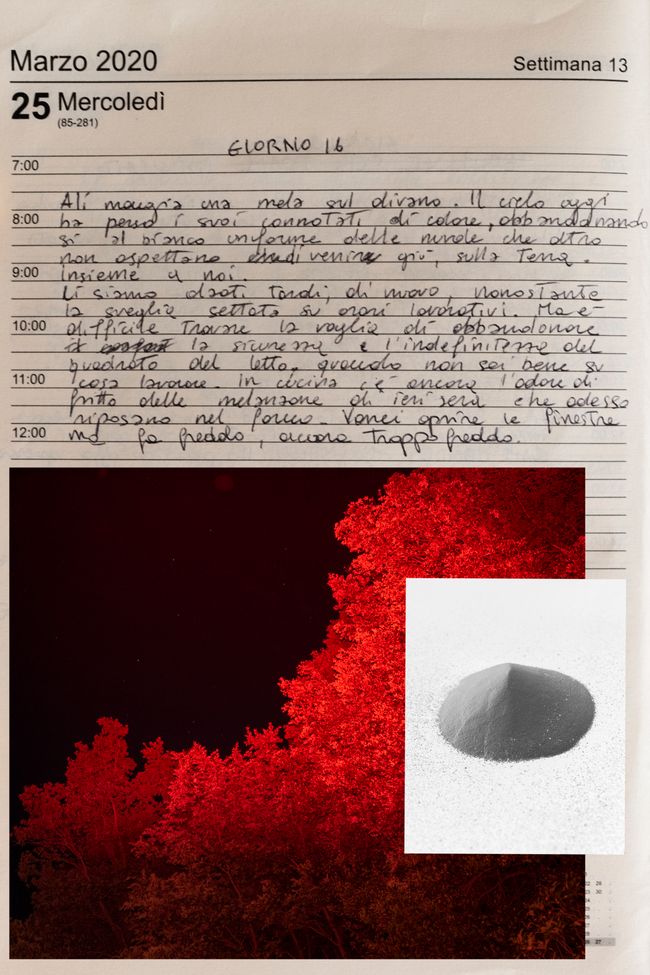 Marzo 2020
Settimana 13
25 Mercoledì
(85-281)
GIORNO 16
7:00
Ali mangia una mela sul divano. Il cielo oggi
8:00
ha perso i suoi connotati di colore, abbandonando
si al bianco uniforme delle nuvole che altro
non aspettano di venire giù, sulla Terra.
9:00
Insieme a noi.
Ci siamo alzati tardi, di nuovo, nonostante
la sveglia settata su orari lavorativi. Ma è
10:00
difficile trovare la voglia di abbandonare
la sicurezza e l'indefinitezza del
quadrato del letto, quando non sai bene su
11:00
cosa lavorare. In cucina c'è ancora l'odore di
fritto delle melanzane di ieri sera che adesso
riposano nel forno. Vorrei aprire le finestre
12:00
ma fa freddo, ancora troppo freddo.